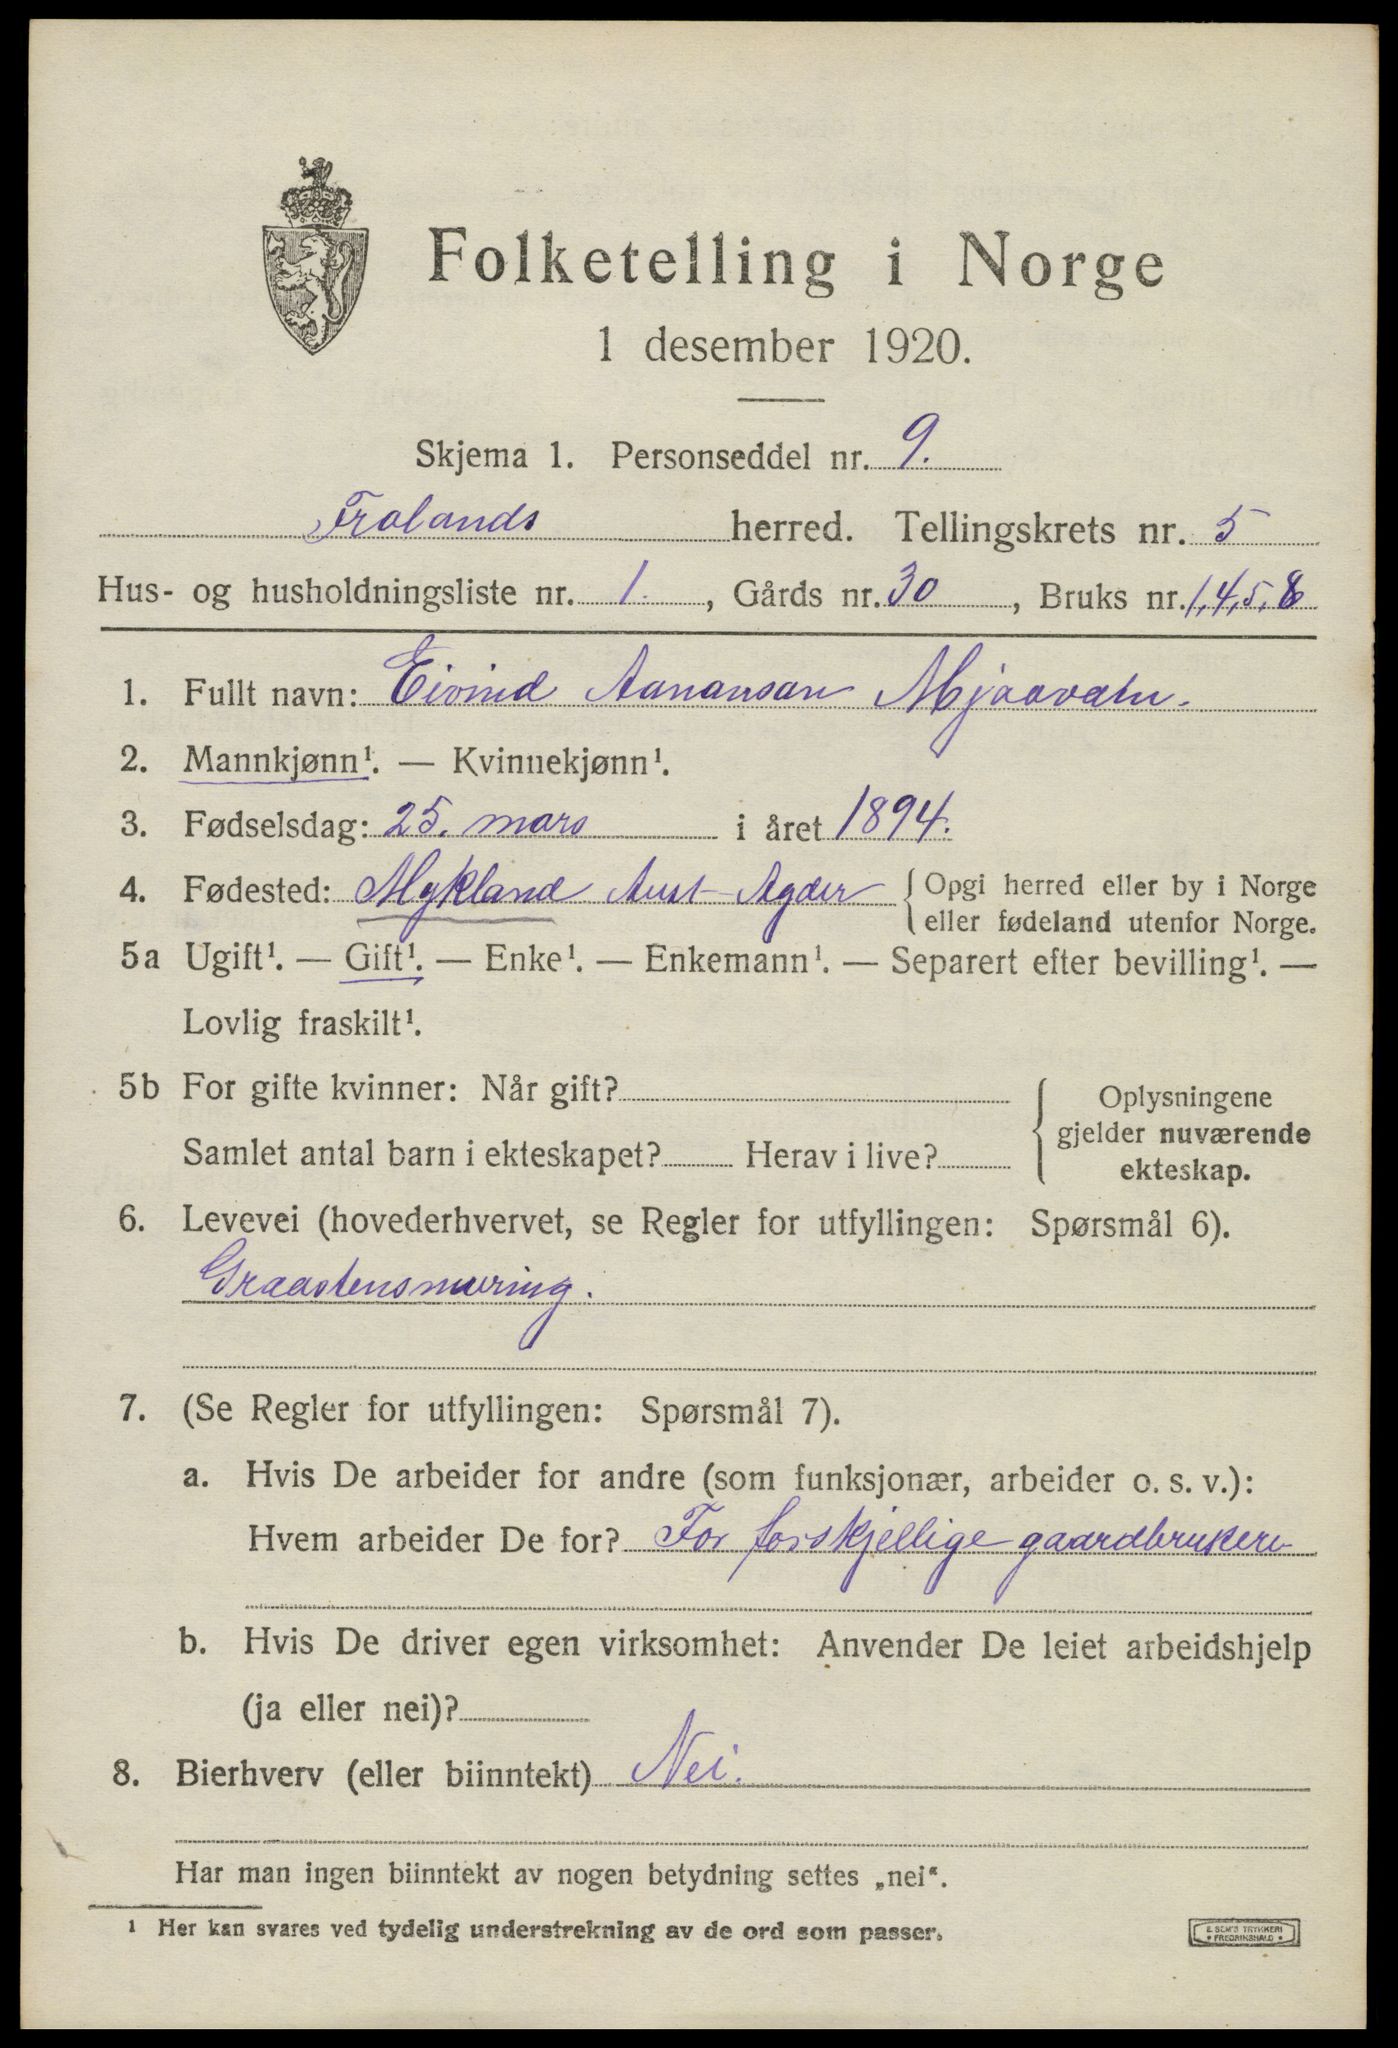 Folketelling i Norge
1 desember 1920.
Skjema 1. Personseddel nr. 9.
Frolands herred. Tellingskrets nr. 5
Hus- og husholdningsliste nr. 1. , Gårds nr. 30 , Bruks nr. 1,4,5,8
1. Fullt navn: Eivind Aanonsøn Mjaavatn.
2. Mannkjønn¹. — Kvinnekjønn¹.
3. Fødselsdag: 25. mars i året 1894.
4. Fødested: Mykland Aust-Agder { Opgi herred eller by i Norge
eller fødeland utenfor Norge.
5a Ugift¹. — Gift¹. — Enke¹. — Enkemann¹. — Separert efter bevilling¹. —
Lovlig fraskilt¹.
5b For gifte kvinner: Når gift? { Oplysningene
gjelder nuværende
Samlet antal barn i ekteskapet? Herav i live?
ekteskap.
6. Levevei (hovederhvervet, se Regler for utfyllingen: Spørsmål 6).
Graastensmuring.
7. (Se Regler for utfyllingen: Spørsmål 7).
a. Hvis De arbeider for andre (som funksjonær, arbeider o. s. v.):
Hvem arbeider De for? For forskjellige gaardbrukere
b. Hvis De driver egen virksomhet: Anvender De leiet arbeidshjelp
(ja eller nei)?
8. Bierhverv (eller biinntekt) Nei.
Har man ingen biinntekt av nogen betydning settes „nei“.
¹ Her kan svares ved tydelig understrekning av de ord som passer.
E. SEM'S TRYKKERI
• FREDRIKSHALD •